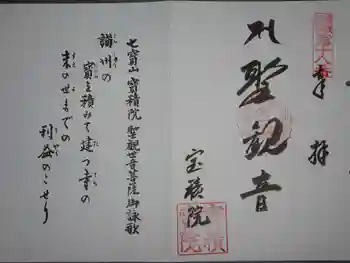 奉拝
聖観音
宝積院
七寳山 寳積院 聖観世音菩薩御詠歌
讃州の
寳を積みて建つ寺の
末の世までの
利益のこせり